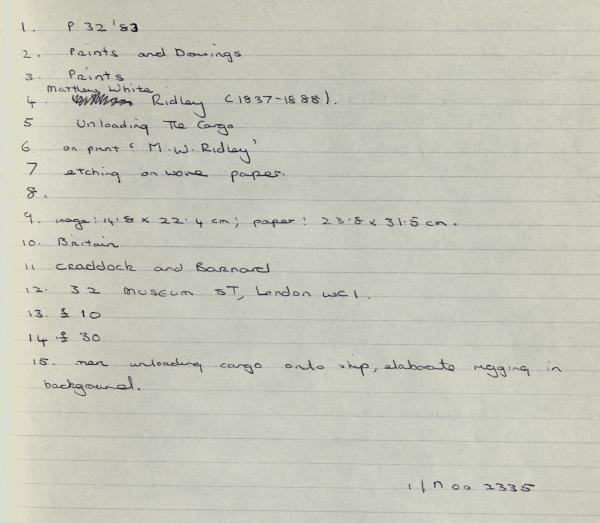 1. P 32 '83
2. Prints and Drawings
3. Prints
Matthew White
4. Ridley (1837-1888).
5 Unloading The Cargo
6 on print 'M.W. Ridley'
7 etching on wove paper.
8.
9. image: 14.8 x 22.4 cm; paper: 23.8 x 31.5 cm.
10. Britain
11 Craddock and Barnard
12. 32 Museum ST, London WC1.
13. £ 10
14 £ 30
15. men unloading cargo onto ship, elaborate rigging in
background.
2335